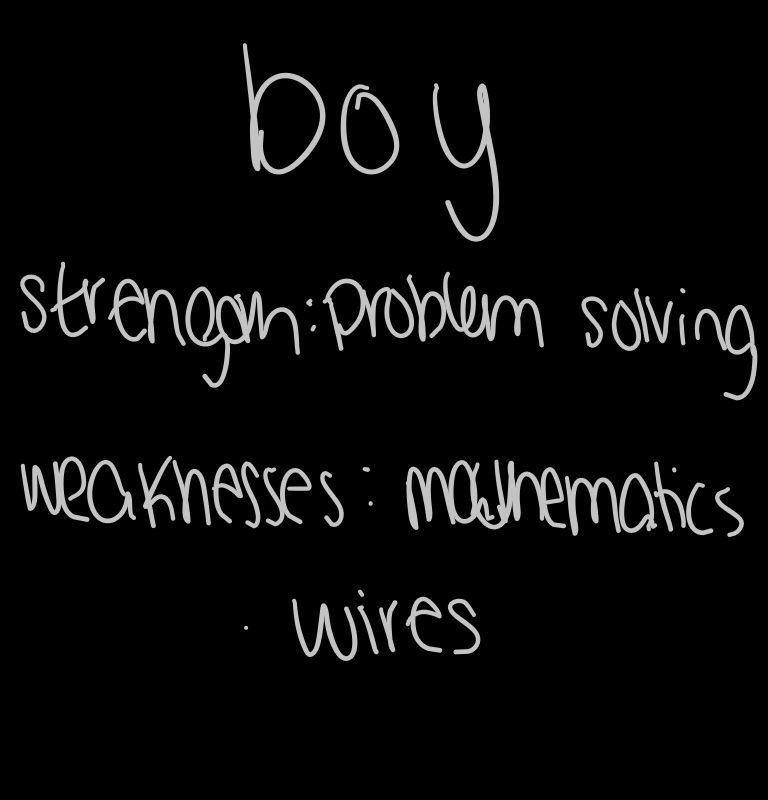 boy
strength: problem solving
weaknesses: mathematics
. wires